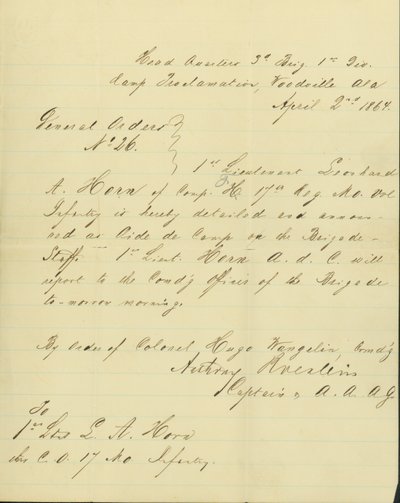 Head Quarters 3d Brig. 1st Div.
Camp Proclamation, Woodville Ala
April 2nd 1864.
General Orders
No 26.
1st Lieutenant Leonhard
A. Horn of Comp. H 17th Reg. Mo. Vol
Infantry is hereby detailed and announ-
ced as Aide de Camp on the Brigade-
Staff. 1st Lieut. Horn A. d. C. will
report to the Comd'g officer of the Brigade
to-morrow morning.
By Order of Colonel Hugo Wangelin, Comd'g
Captain & A. A. A. G.
To
1st L. A. Horn
C. O. 17 Mo Infantry.